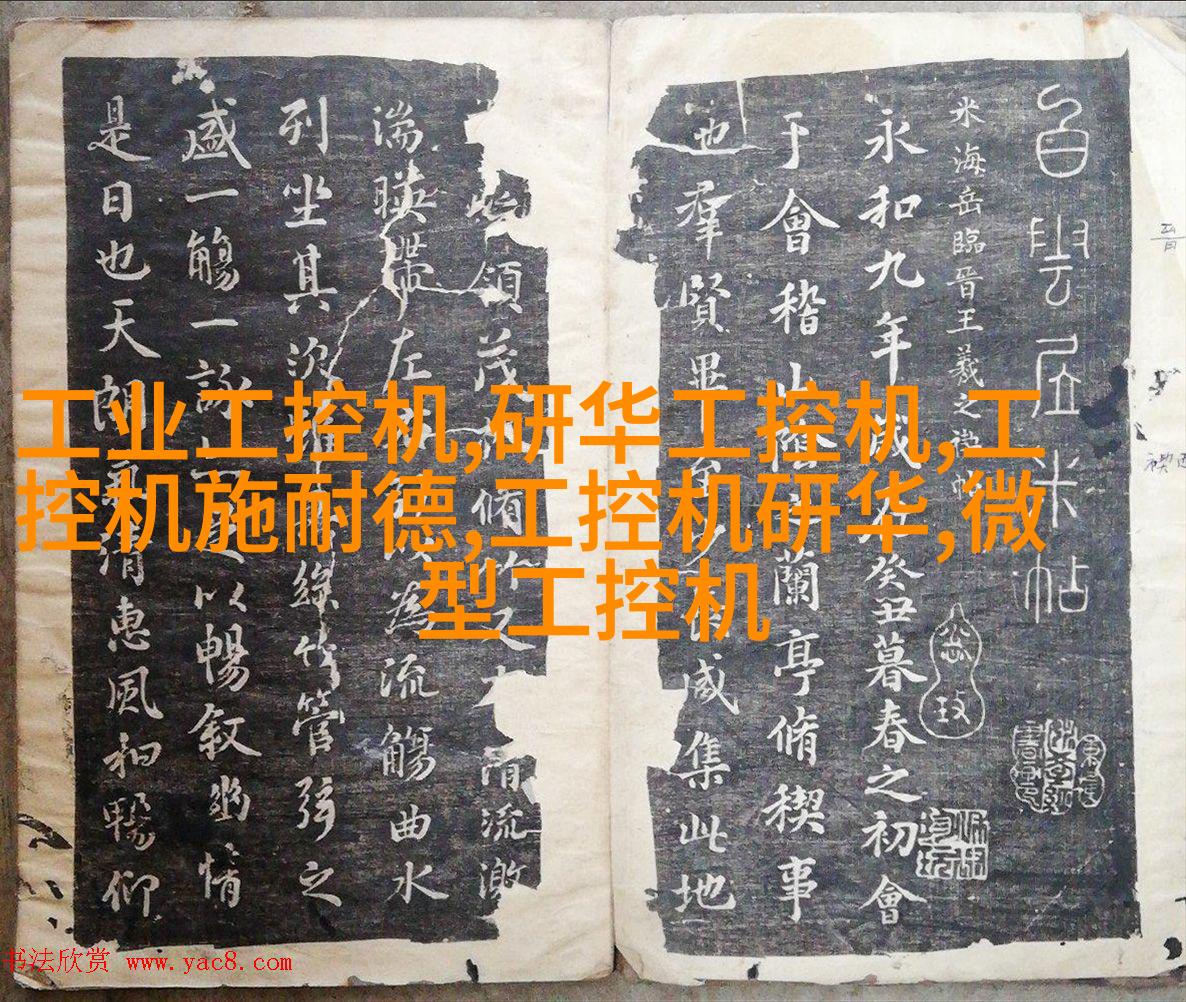 白雲居米帖
米海岳臨晉王羲之禊帖
永和九年歲在癸丑暮春之初會
于會稽山陰之蘭亭脩稧事
也羣賢畢至少咸集此地
領茂脩竹又清流激
湍暎帶左右為流觴曲水
列坐其次雖無絲竹管弦之
盛一觴一詠足以暢敘幽情
是日也天朗氣清惠風和暢仰
工业工控机,研华工控机,工
控机施耐德,工控机研华,微
型工控机
书法欣赏 www.yac8.com